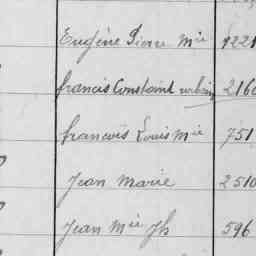 Eugène Pierre Mie 1221
francis Constant urbain 2160
francois Louis Mie 751
Jean Marie 2510
Jean Mie Jh 596